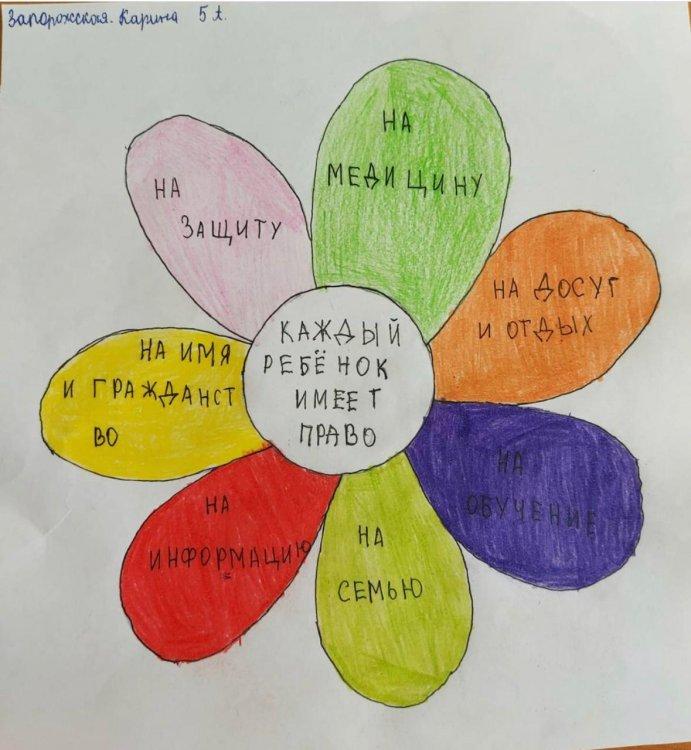 Запорожская. Карина 5 t.
КАЖДЫЙ
РЕБЁНОК
ИМЕЕТ
ПРАВО
НА
МЕДИЦИНУ
НА ДОСУГ
И ОТДЫХ
НА
ОБУЧЕНИЕ
НА
СЕМЬЮ
НА
ИНФОРМАЦИЮ
НА ИМЯ
И ГРАЖДАНСТ
ВО
НА
ЗАЩИТУ